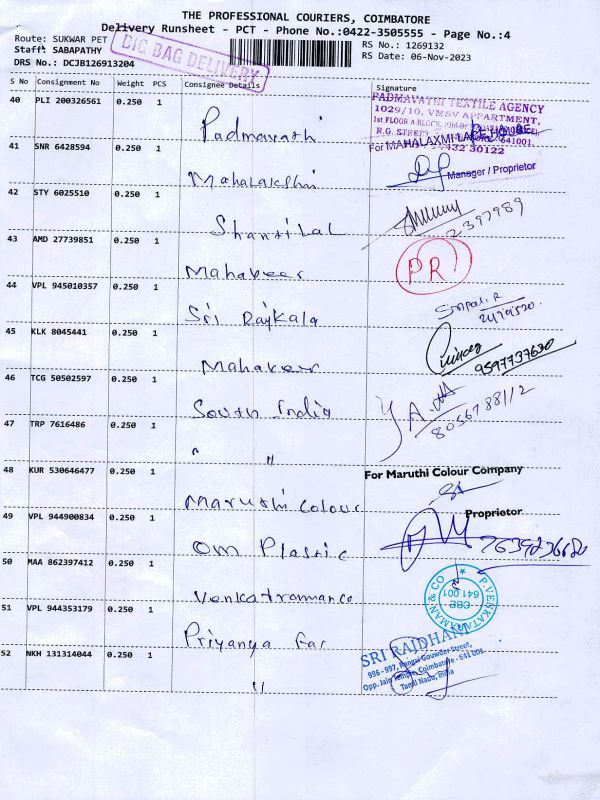 THE PROFESSIONAL COURIERS, COIMBATORE
Delivery Runsheet - PCT - Phone No.:0422-3505555 - Page No.:4
Route: SUKWAR PET
RS No.: 1269132
Staff: SABAPATHY
RS Date: 06-Nov-2023
DRS No.: DCJB126913204
BIG BAG DELIVERY
S No Consignment No Weight PCS Consignee Details Signature
40 PLI 200326561 0.250 1 Padmavathi
PADMAVATHI TEXTILE AGENCY
1029/10, VMSV APPARTMENT,
1st FLOOR A BLOCK,
R.G. STREET, 641001.
94432 30122
41 SNR 6428594 0.250 1 Mahalakshi
For MAHALAXMI LACE HOUSE
Manager / Proprietor
42 STY 6025510 0.250 1 Shantilal
2397989
43 AMD 27739851 0.250 1 Mahaveer
PR
44 VPL 945010357 0.250 1 Sri Rajkala
45 KLK 8045441 0.250 1 Mahaveer
9597737630
46 TCG 50502597 0.250 1 South India
8056788112
47 TRP 7616486 0.250 1 " "
48 KUR 530646477 0.250 1 Maruthi colour
For Maruthi Colour Company
Proprietor
49 VPL 944900834 0.250 1 Om Plastic
50 MAA 862397412 0.250 1 Venkatraman co
P. VENKATARAMAN & CO
CBE
641 001
51 VPL 944353179 0.250 1 Priyanga
SRI RAJDHANI
996 - 997, Rangai Gouwder Street,
Opp. Jain Temple, Coimbatore - 641 001.
Tamil Nadu, India
52 NKH 131314044 0.250 1 "